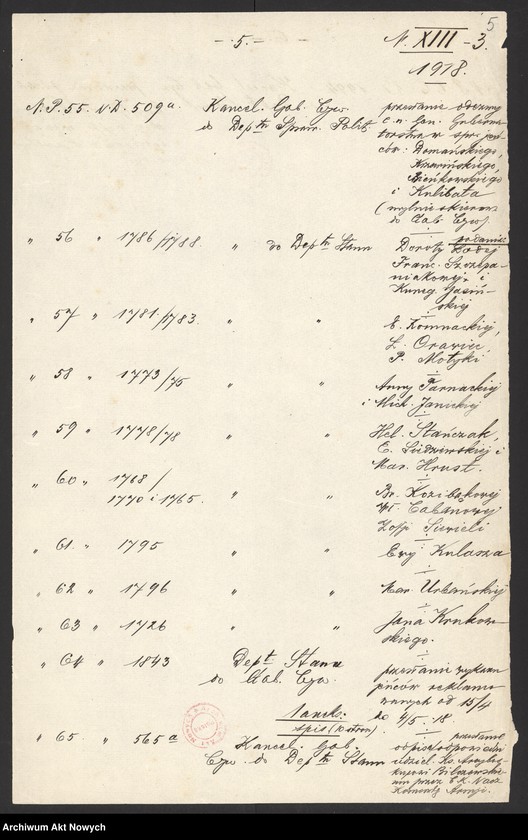 5
- 5. -
N. XIII - 3.
1918.
N. P. 55. N.D. 509a. Kancel. Gab. Cyw. do Dept. Spraw. Polit.
przesłanie odezwy
c. n. Gen. Guberna-
torstwa w spr. jeń-
ców: Domańskiego,
Bieńkowskiego
i Kulibata
(mylnie skierow.
do Gab. Cyw)
" 56 " 1786/1788. " do Dept. Stanu
podanie
Doroty
Franc. Szczepa-
niakowej i
Kuneg. Gasiń-
skiej
" 57 " 1781/1783. " "
E. Komnackiej,
L. Orawiec,
P. Motyki
" 58 " 1773/75 " "
Anny Parnackiej
i Mich. Janickiej
" 59 " 1778/78 " "
Hel. Stańczak,
E. Ludzewskiej i
Mar. Hrust.
" 60 " 1768/
1770 i 1765. " "
Br. Kozibąkowej
W. Cabanowej
Zofji
" 61. " 1795 " "
Ewy Kulasza
" 62 " 1796 " "
Mar. Urbańskiej
" 63 " 1726 " "
Jana Krukow-
skiego.
" 64 " 1843 Dept. Stanu
do Gab. Cyw.
przesłanie wykazu
jeńców reklamo-
wanych od 15/4
do 4/5. 18.
spis
" 65 " 565a Kancel. Gab.
Cyw. do Dept. Stanu
przesłanie
odpisu odpowiedzi
udziel. Ks. Arcybis-
kupowi Bilczewskie-
mu przez c. k. Nacz.
Komendę Armji.
Archiwum Akt Nowych